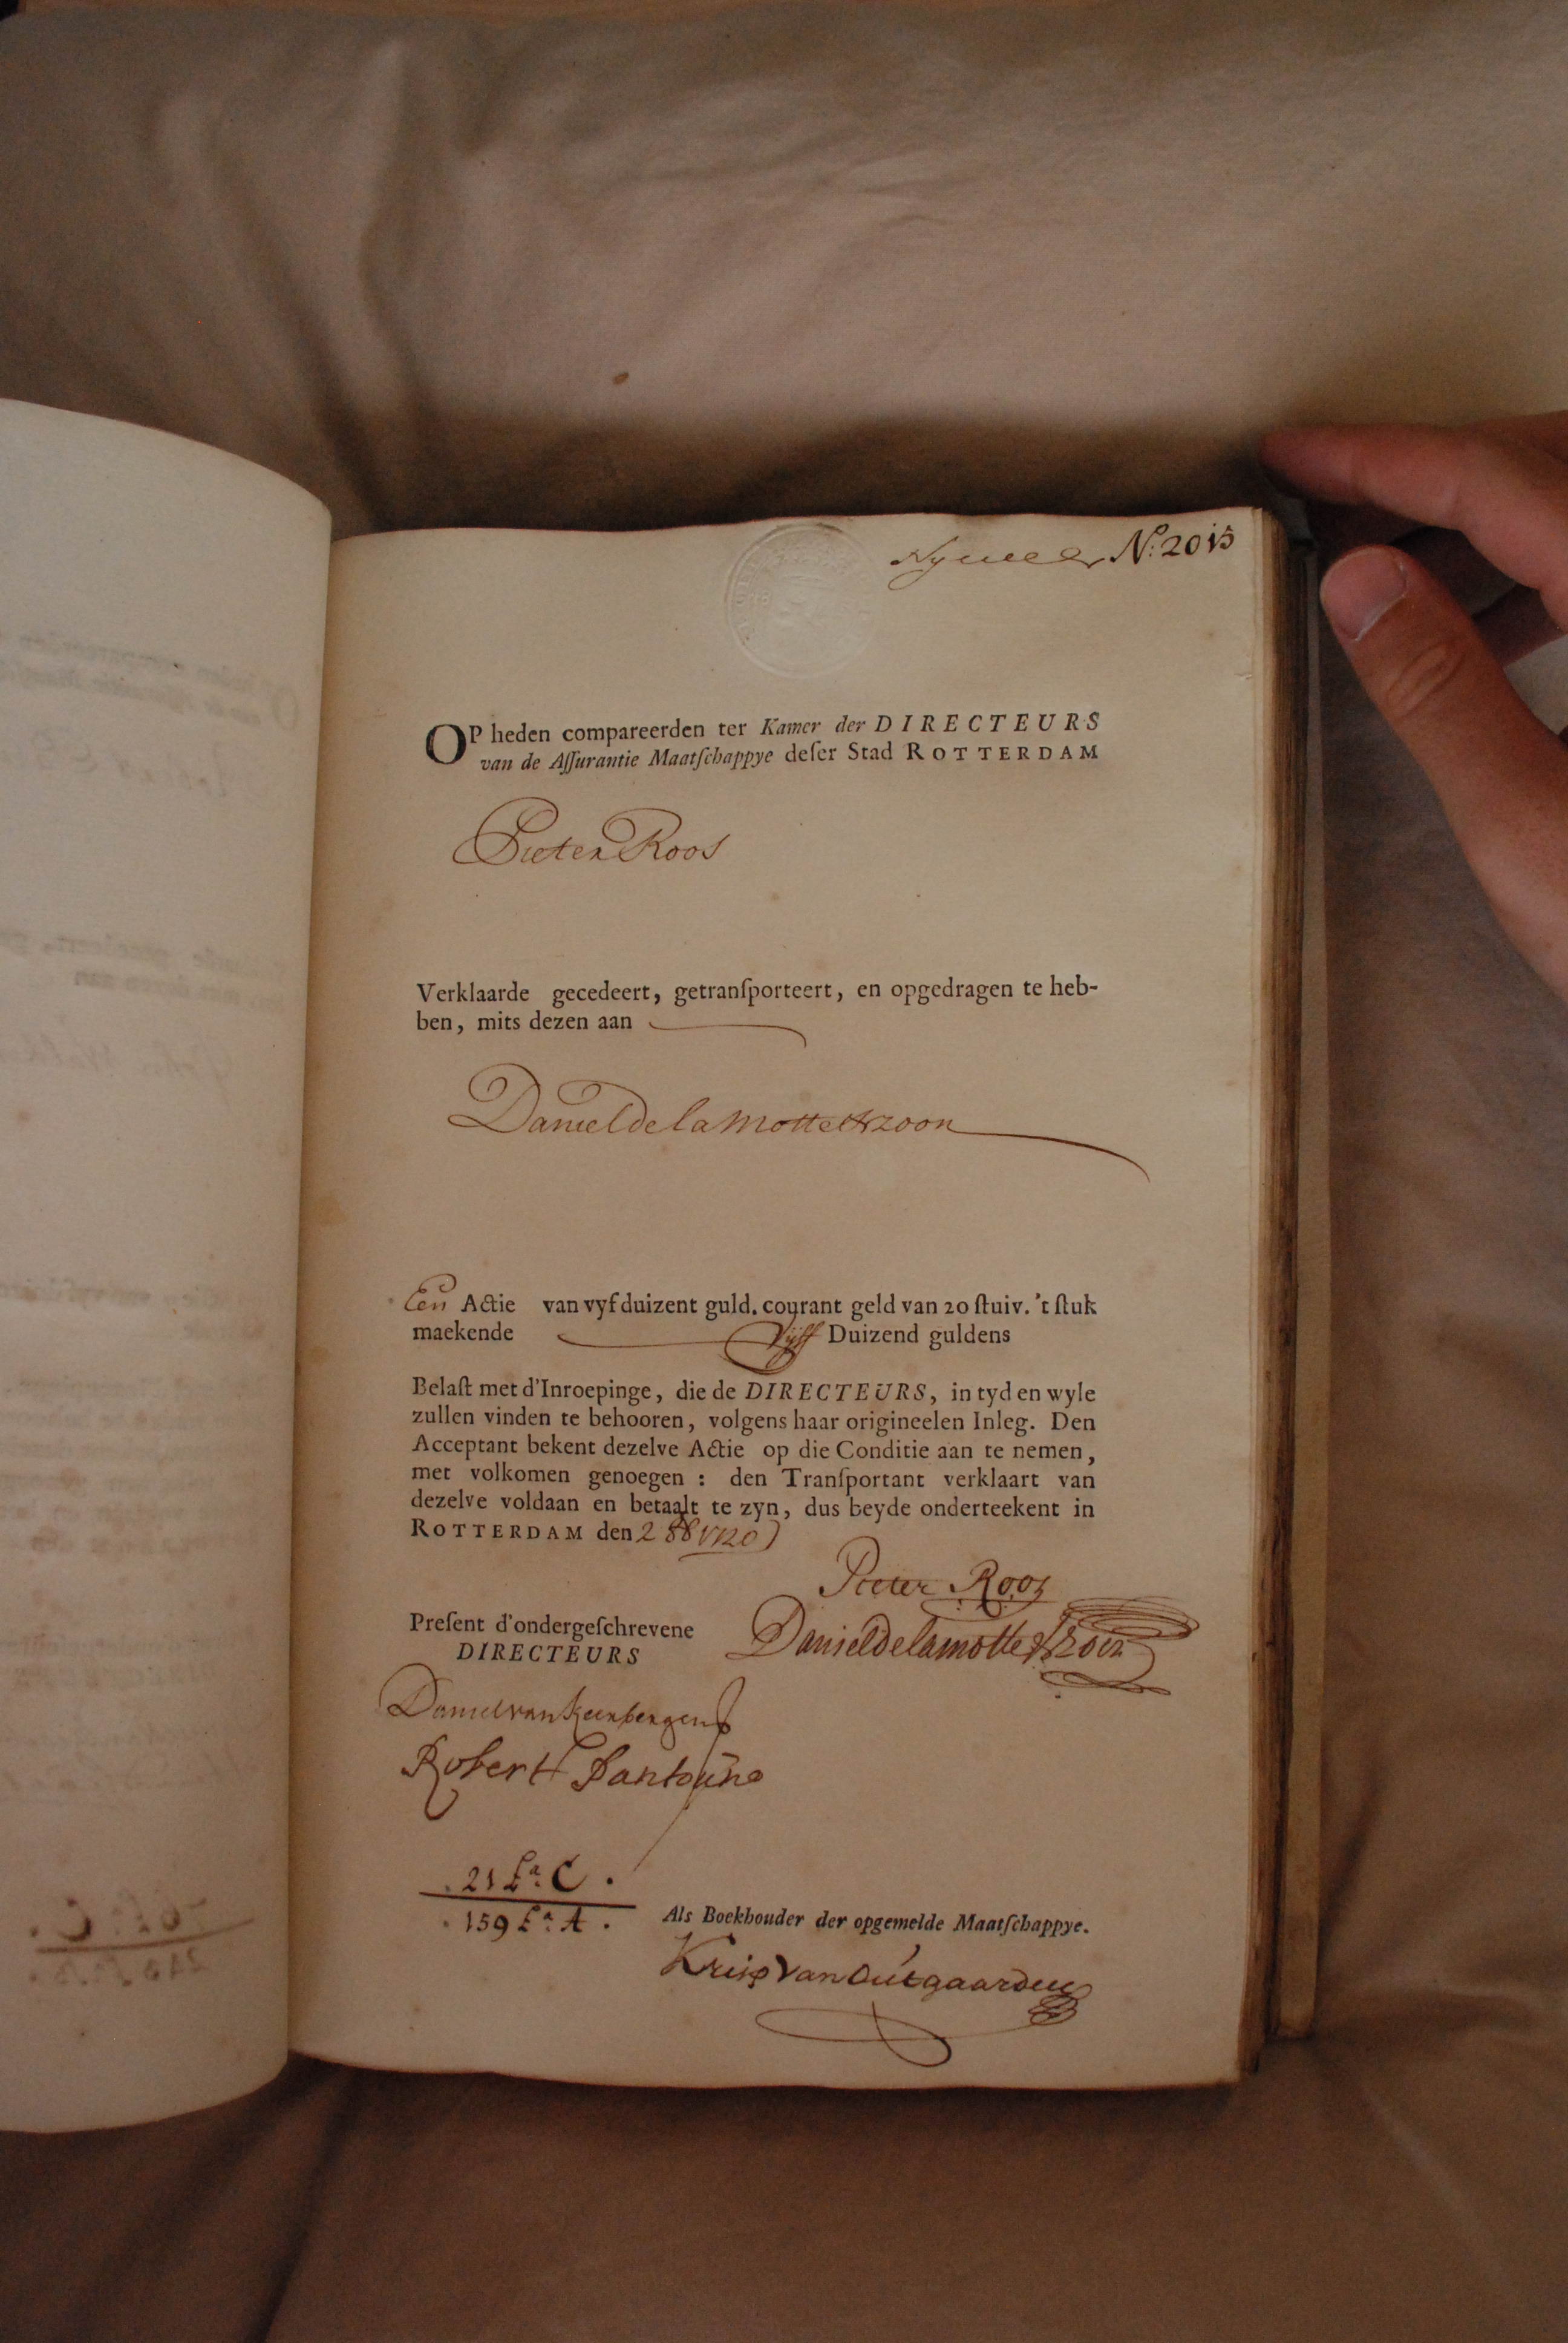 N: 2015
OP heden compareerden ter Kamer der DIRECTEURS
van de Aſſurantie Maatſchappye deſer Stad ROTTERDAM
Pieter Roos
Verklaarde gecedeert, getranſporteert, en opgedragen te heb-
ben, mits dezen aan
Daniel de la Motte
Een Actie van vyf duizent guld. courant geld van 20 ſtuiv. 't ſtuk
maekende Vijff Duizend guldens
Belaſt met d'Inroepinge, die de DIRECTEURS, in tyd en wyle
zullen vinden te behooren, volgens haar origineelen Inleg. Den
Acceptant bekent dezelve Actie op die Conditie aan te nemen,
met volkomen genoegen : den Tranſportant verklaart van
dezelve voldaan en betaalt te zyn, dus beyde onderteekent in
ROTTERDAM den 2 8 1720
Pieter Roos
Preſent d'ondergeſchrevene
DIRECTEURS
Daniel de la Motte
Daniel van
Robert
21 La C.
159 La A.
Als Boekhouder der opgemelde Maatſchappye.